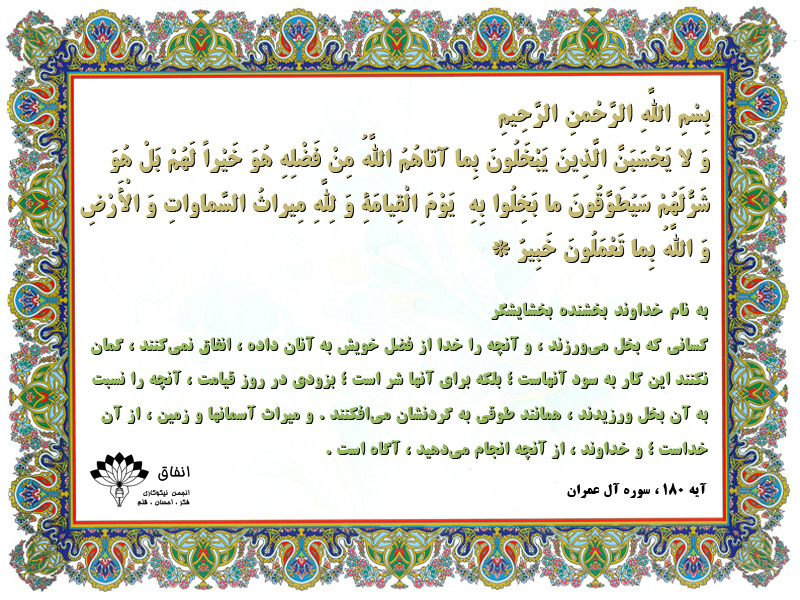 بِسْمِ اللَّهِ الرَّحْمنِ الرَّحِیمِ
وَ لا یَحْسَبَنَّ الَّذِینَ یَبْخَلُونَ بِما آتاهُمُ اللَّهُ مِنْ فَضْلِهِ هُوَ خَیْراً لَهُمْ بَلْ هُوَ
شَرٌّ لَهُمْ سَیُطَوَّقُونَ ما بَخِلُوا بِهِ یَوْمَ الْقِیامَةِ وَ لِلَّهِ مِیراثُ السَّماواتِ وَ الْأَرْضِ
وَ اللَّهُ بِما تَعْمَلُونَ خَبِیرٌ *
به نام خداوند بخشنده بخشایشگر
کسانی که بخل می‌ورزند ، و آنچه را خدا از فضل خویش به آنان داده ، انفاق نمی‌کنند ، گمان
نکنند این کار به سود آنهاست ؛ بلکه برای آنها شر است ؛ بزودی در روز قیامت ، آنچه را نسبت
به آن بخل ورزیدند ، همانند طوقی به گردنشان می‌افکنند . و میراث آسمانها و زمین ، از آن
خداست ؛ و خداوند ، از آنچه انجام می‌دهید ، آگاه است .
آیه ۱۸۰ ، سوره آل عمران
انفاق
انجمن نیکوکاری
فکر ، احسان ، قلم